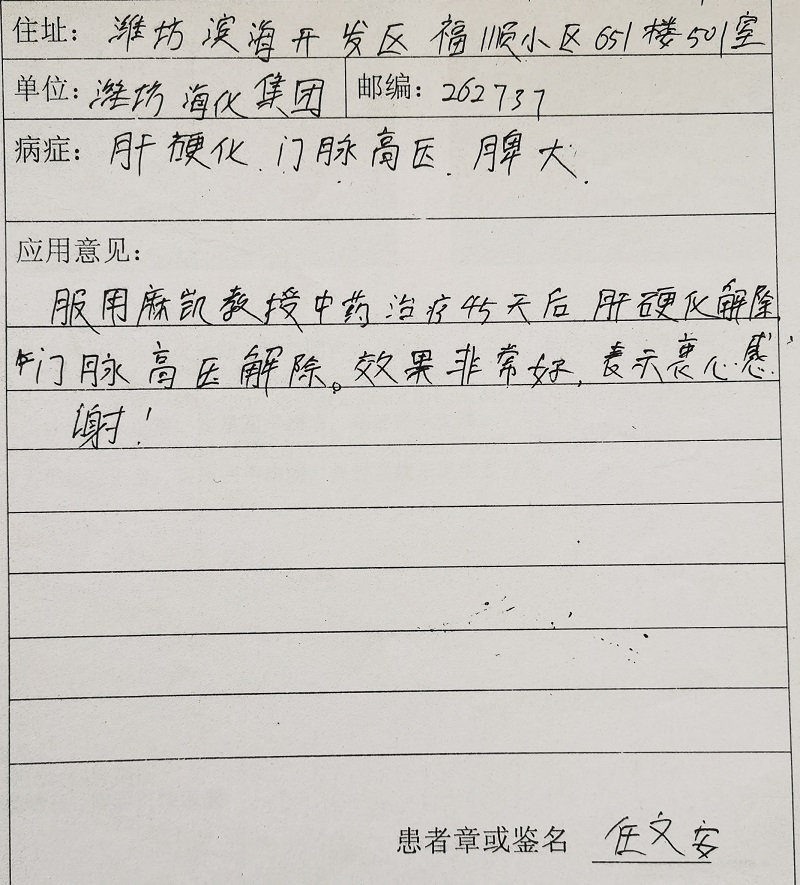 住址：潍坊滨海开发区福顺小区651楼501室
单位：潍坊海化集团 邮编：262737
病症：肝硬化.门脉高压.脾大.
应用意见：
服用麻凯教授中药治疗45天后肝硬化解除,
门脉高压解除。效果非常好,表示衷心感
谢！
患者章或鉴名 任文安